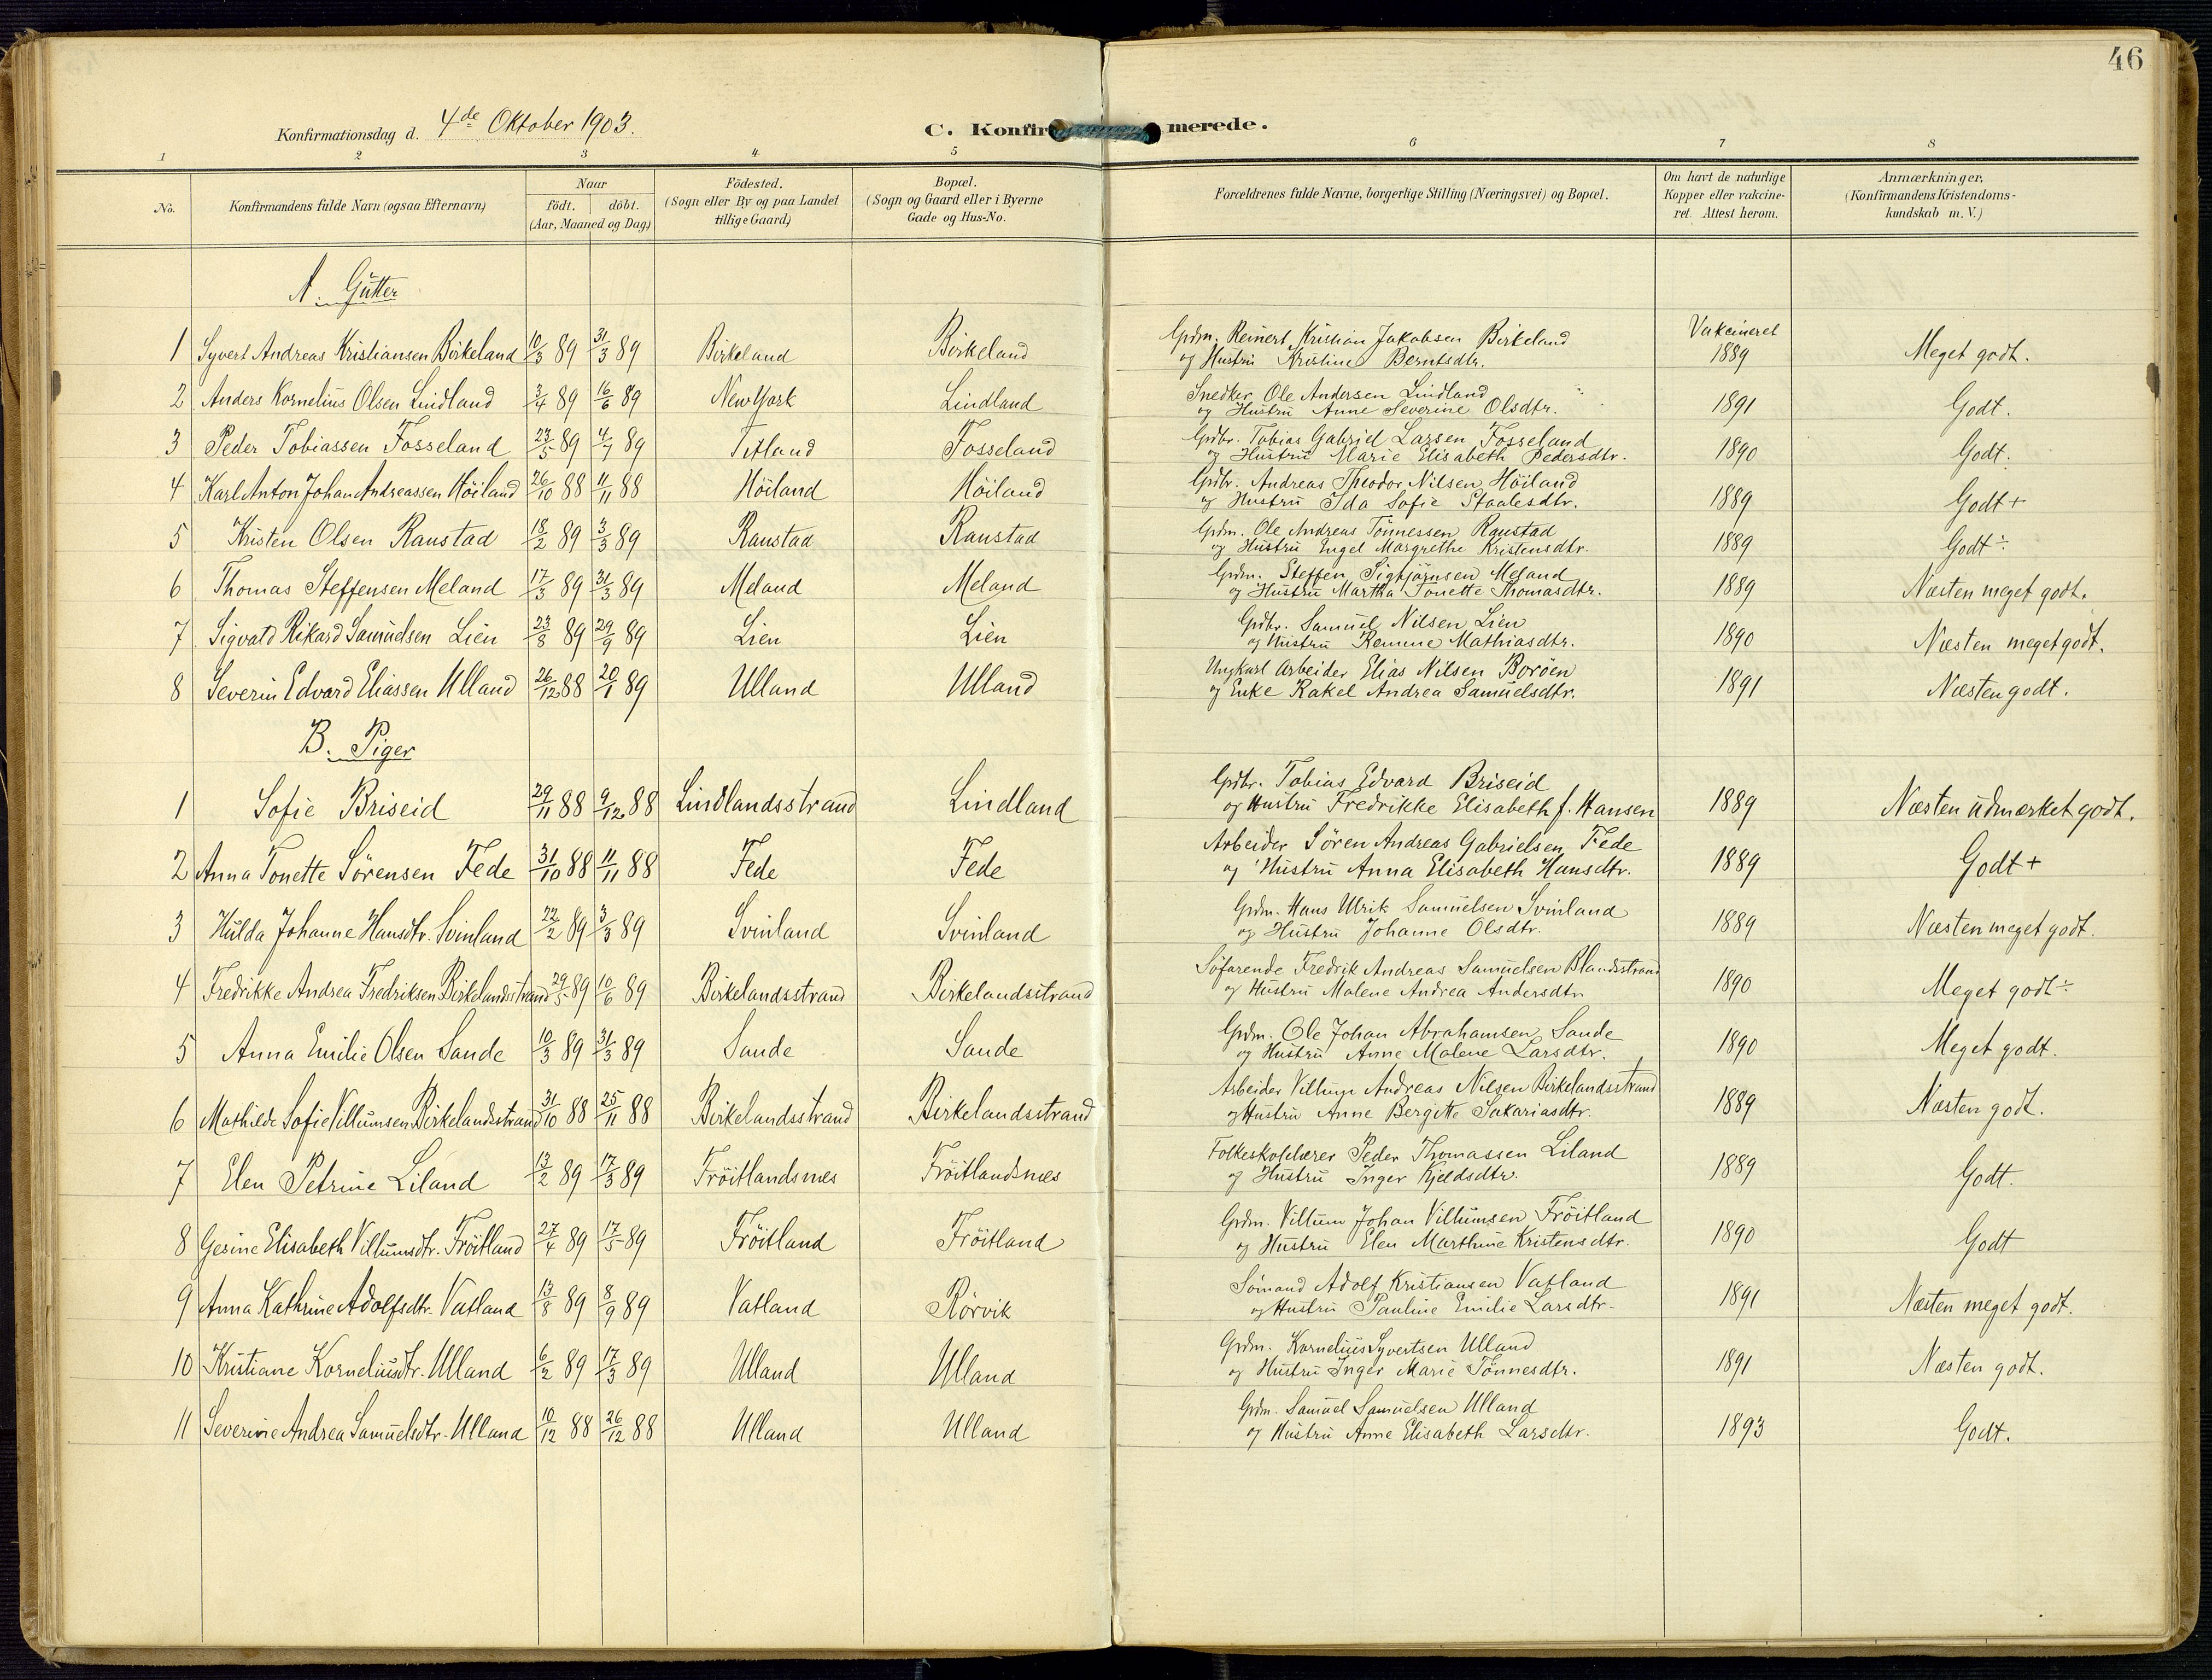 46
Konfirmationsdag d. 4de Oktober 1903.
C. Konfirmerede.
1 2 3 4 5 6 7 8
No. Konfirmandens fulde Navn (ogsaa Efternavn) Naar födt. döbt. (Aar, Maaned og Dag) Födested. (Sogn eller By og paa Landet tillige Gaard) Bopæl. (Sogn og Gaard eller i Byerne Gade og Hus-No. Forældrenes fulde Navne, borgerlige Stilling (Næringsvei) og Bopæl. Om havt de naturlige Kopper eller vakcineret. Attest herom. Anmærkninger, (Konfirmandens Kristendomskundskab m. V.)
A. Gutter
1 Syvert Andreas Kristiansen Birkeland 10/3 89 31/3 89 Birkeland Birkeland Grdm. Reinert Kristian Jakobsen Birkeland og Hustru Kristine Berntsdtr. Vakcineret 1889 Meget godt.
2 Anders Kornelius Olsen Lindland 3/4 89 16/6 89 New York Lindland Snedker Ole Andersen Lindland og Hustru Anne Severine Olsdtr. 1891 Godt.
3 Peder Tobiassen Fosseland 23/5 89 4/7 89 Titland Fosseland Grdbr. Tobias Gabriel Larsen Fosseland og Hustru Marie Elisabeth Pedersdtr. 1890 Godt.
4 Karl Anton Johan Andreassen Höiland 26/10 88 11/11 88 Höiland Höiland Grdbr. Andreas Theodor Nilsen Höiland og Hustru Ida Sofie Staalesdtr. 1889 Godt+
5 Kristen Olsen Raustad 18/2 89 3/3 89 Raustad Raustad Grdm. Ole Andreas Tönnessen Raustad og Hustru Engel Margrethe Kristensdtr. 1889 Godt÷
6 Thomas Steffensen Meland 17/3 89 31/3 89 Meland Meland Grdm. Steffen Sigbjörnsen Meland og Hustru Martha Tonette Thomasdtr. 1889 Næsten meget godt.
7 Sigvald Rikard Samuelsen Lien 23/8 89 29/9 89 Lien Lien Grdbr. Samuel Nilsen Lien og Hustru Remine Mathiasdtr. 1890 Næsten meget godt.
8 Severin Edvard Eliassen Ulland 26/12 88 20/1 89 Ulland Ulland Ungkarl Arbeider Elias Nilsen Boröen og Enke Rakel Andrea Samuelsdtr. 1891 Næsten godt.
B. Piger
1 Sofie Briseid 29/11 88 9/12 88 Lindlandsstrand Lindland Grdbr. Tobias Edvard Briseid og Hustru Fredrikke Elisabeth f. Hansen 1889 Næsten udmærket godt.
2 Anna Tonette Sörensen Fede 31/10 88 11/11 88 Fede Fede Arbeider Sören Andreas Gabrielsen Fede og Hustru Anna Elisabeth Hansdtr. 1889 Godt+
3 Hulda Johanne Hansdtr. Svinland 22/2 89 3/3 89 Svinland Svinland Grdm. Hans Ulrik Samuelsen Svinland og Hustru Johanne Olsdtr. 1889 Næsten meget godt.
4 Fredrikke Andrea Fredriksen Birkelandsstrand 29/5 89 10/6 89 Birkelandsstrand Birkelandsstrand Söfarende Fredrik Andreas Samuelsen Blandsstrand og Hustru Malene Andrea Andersdtr 1890 Meget godt÷
5 Anna Emilie Olsen Sande 10/3 89 31/3 89 Sande Sande Grdm. Ole Johan Abrahamsen Sande og Hustru Anne Malene Larsdtr. 1890 Meget godt.
6 Mathilde Sofie Villumsen Birkelandsstrand 31/10 88 25/11 88 Birkelandsstrand Birkelandsstrand Arbeider Villum Andreas Nilsen Birkelandsstrand og Hustru Anne Bergitte Sakariasdtr. 1889 Næsten godt.
7 Elen Petrine Liland 13/2 89 17/3 89 Fröitlandsnes Fröitlandsnes Folkeskolelærer Peder Thomassen Liland og Hustru Inger Kjeldsdtr. 1889 Godt.
8 Gesine Elisabeth Villumsdtr. Fröitland 27/4 89 17/5 89 Fröitland Fröitland Grdm. Villum Johan Villumsen Fröitland og Hustru Elen Marthine Kristensdtr. 1890 Godt
9 Anna Kathrine Adolfsdtr. Vatland 13/8 89 8/9 89 Vatland Rörvik Sömand Adolf Kristiansen Vatland og Hustru Pauline Emilie Larsdtr. 1891 Næsten meget godt.
10 Kristiane Korneliusdtr. Ulland 6/2 89 17/3 89 Ulland Ulland Grdm. Kornelius Syvertsen Ulland og Hustru Inger Marie Tönnesdtr. 1891 Næsten godt.
11 Severine Andrea Samuelsdtr. Ulland 10/12 88 26/12 88 Ulland Ulland Grdm. Samuel Samuelsen Ulland og Hustru Anne Elisabeth Larsdtr. 1893 Godt.